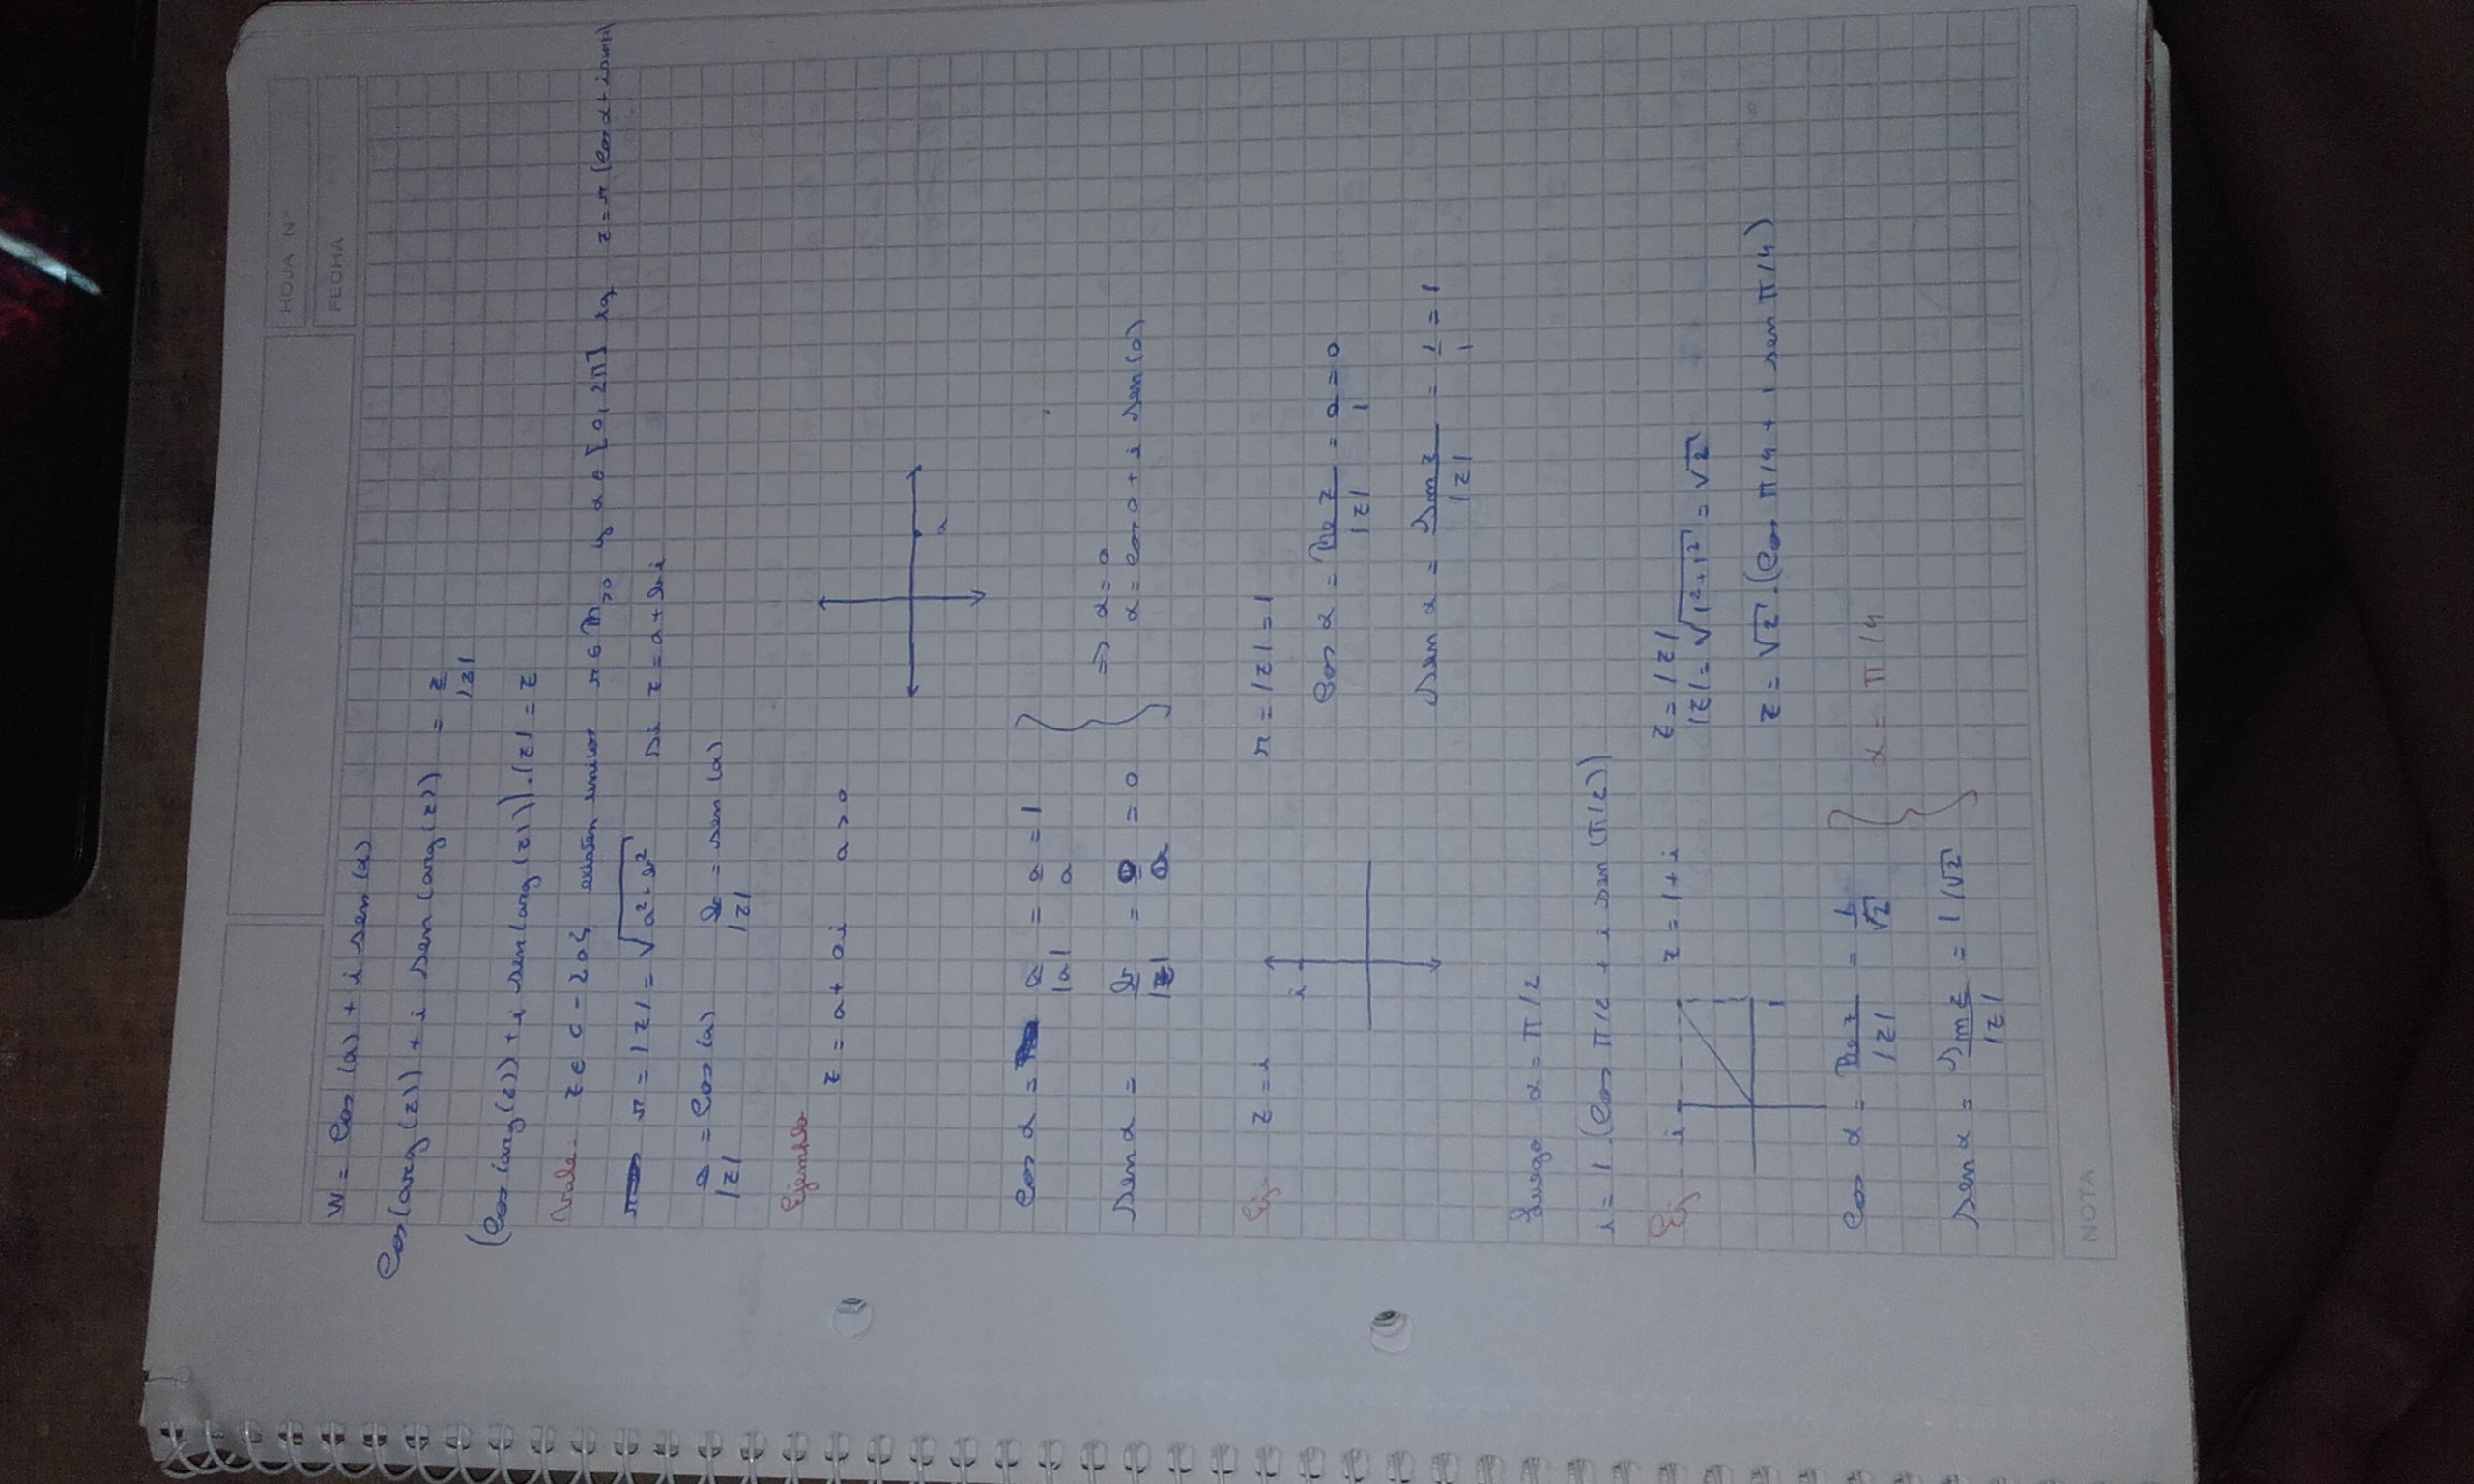 HOJA N°
FECHA
W = Cos (α) + i sen (α)
Cos(arg(z)) + i sen(arg(z)) = z / |z|
(Cos(arg(z)) + i sen(arg(z))).|z| = z
Vale: z ∈ C - {0} existen unicos r ∈ R>0 y α ∈ [0, 2π] tq z = r (Cos α + i sen α)
r = |z| = √(a² + b²) si z = a + bi
a / |z| = Cos (α) b / |z| = sen (α)
Ejemplo
z = a + 0i a > 0
a
Cos α = a / |a| = a / a = 1
sen α = b / |z| = 0 / a = 0
⇒ α = 0
α = cos 0 + i sen(0)
Ej- z = i r = |z| = 1
i
Cos α = Re z / |z| = 0 / 1 = 0
Sen α = Im z / |z| = 1 / 1 = 1
Luego α = π/2
i = 1.(Cos π/2 + i sen (π/2))
Ej i z = 1 + i z = |z|
|z| = √(1² + 1²) = √2
1
z = √2.(Cos π/4 + i sen π/4)
Cos α = Re z / |z| = 1 / √2
α = π/4
Sen α = Im z / |z| = 1/√2
NOTA